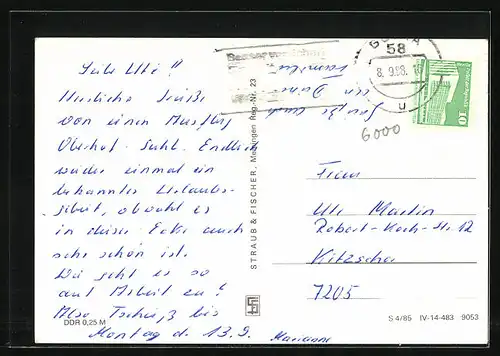 Liebe Uti!!
Herzliche Grüße
von einem Ausflug
Oberhof - Suhl. Endlich
wieder einmal ein
bekanntes Urlaubs-
gebiet, obwohl es
in dieser Ecke auch
sehr schön ist.
Wie geht es so
auf Arbeit zu?
Also Tschüß bis
Montag d. 13.9.
Marianne
Grüße auch
an Deine
Familie
DDR 0,25 M
STRAUB & FISCHER, Meiningen Reg.-Nr. 23
58
8. 9.86
u
10
6000
Frau
Ute Martin
Robert-Koch-Str. 12
Kitzscher
7205
S 4/85 IV-14-483 9053